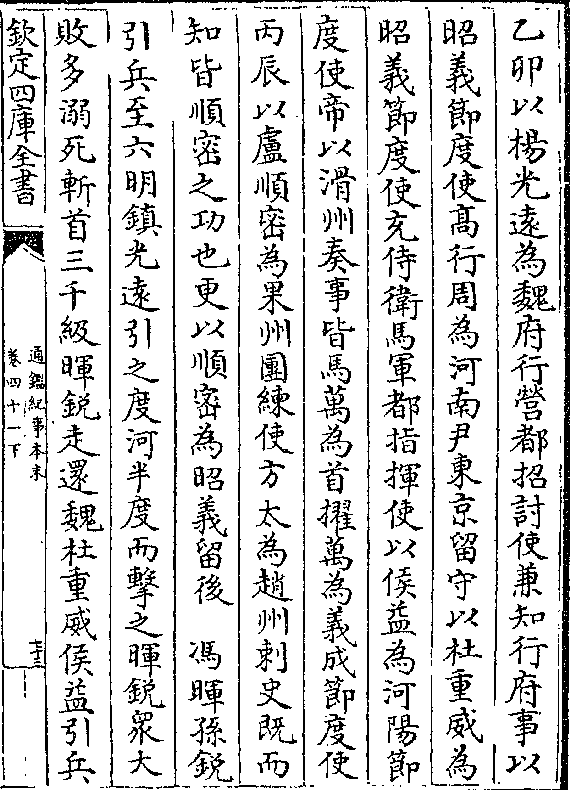 乙卯以楊光遠為魏府行營都招討使兼知行府事以
昭義節度使髙行周為河南尹東京留守以杜重威為
昭義節度使充侍衛馬軍都指揮使以侯益為河陽節
度使帝以滑州奏事皆馬萬為首擢萬為義成節度使
丙辰以盧順密為果州團練使方太為趙州刺史既而
知皆順密之功也更以順密為昭義留後　馮暉孫鋭
引兵至六明鎮光遠引之度河半度而擊之暉鋭衆大
敗多溺死斬首三千級暉鋭走還魏杜重威侯益引兵
欽定四庫全書
通鑑紀事本末
卷四十一下